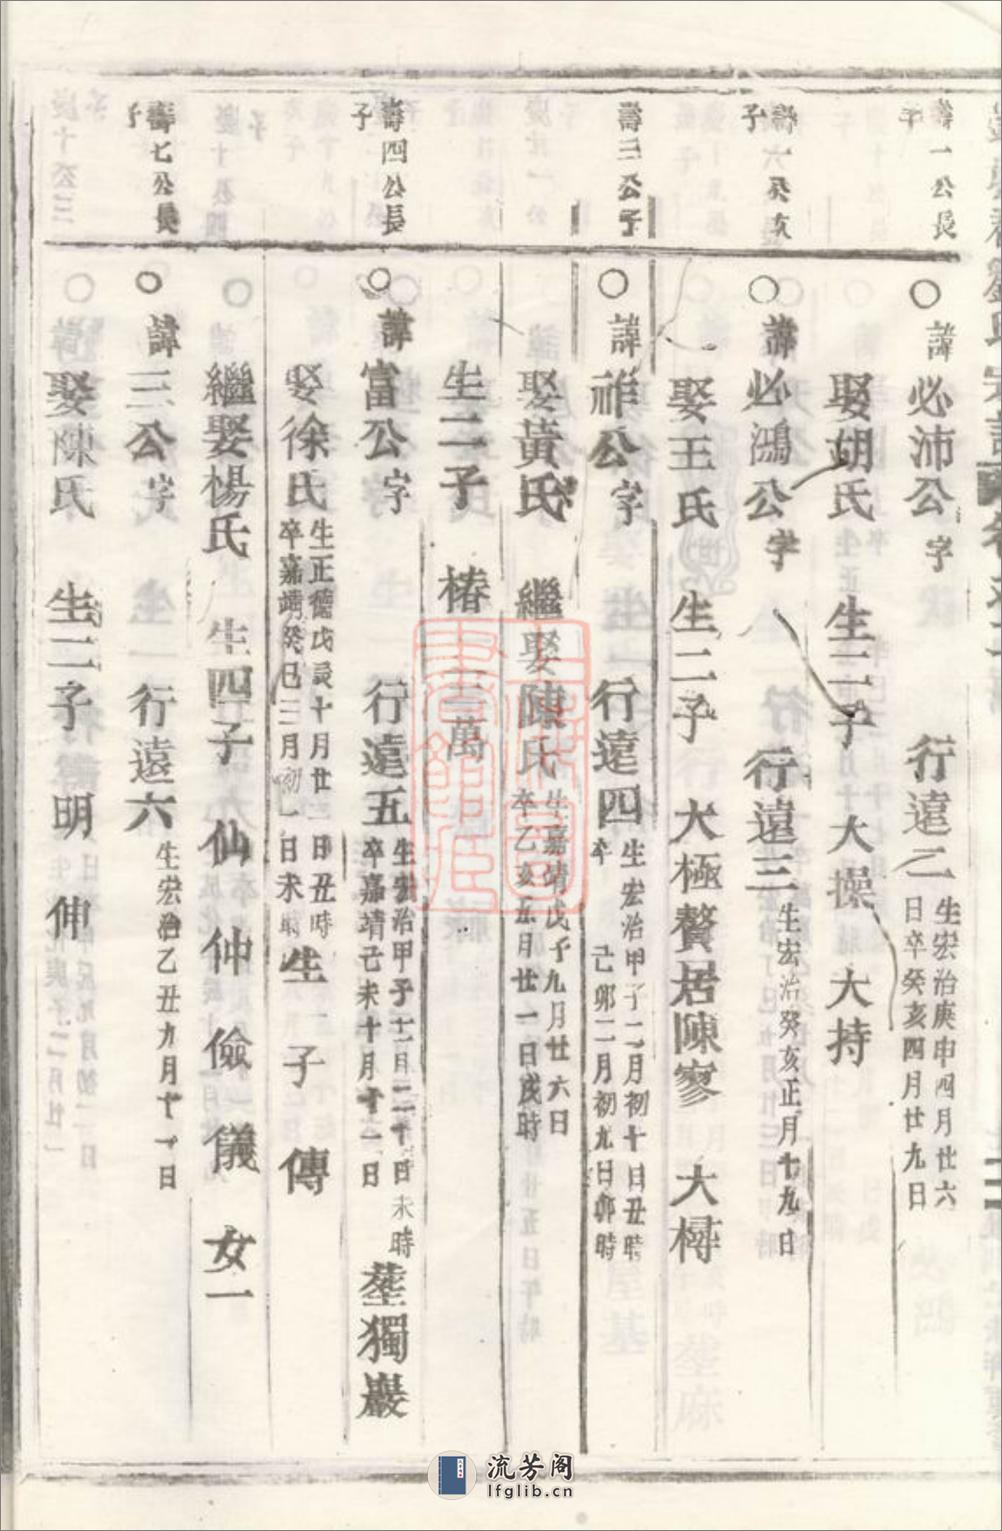 壽一公長子
○諱必沛公字 行遠二 生宏治庚申四月廿六日卒癸亥四月廿九日
娶胡氏 生二子 大操 大持
壽一癸亥子
○諱必鴻公字 行遠三 生宏治癸亥正月十九日
娶王氏 生二子 大極贅居陳寥 大樽
壽三公子
○諱祚公字 行遠四 生宏治甲子二月初十日丑時卒 己卯二月初九日卯時
娶黃氏 繼娶陳氏 生嘉靖戊子九月廿六日卒乙亥五月廿一日戌時
生二子 椿 萬
壽四公長子
○諱富公字 行遠五 生宏治甲子十二月二十日未時卒嘉靖己未十月十一日 塟獨巖
娶徐氏 生正德戊辰十月廿二日丑時卒嘉靖癸巳三月初一日未時 生 子 傳
繼娶楊氏 生四子 仙 仲 儉 儀 女一
壽七公長子
○諱三公字 行遠六 生宏治乙丑九月十一日
娶陳氏 生二子 明 伸
流芳阁
lfglib.cn